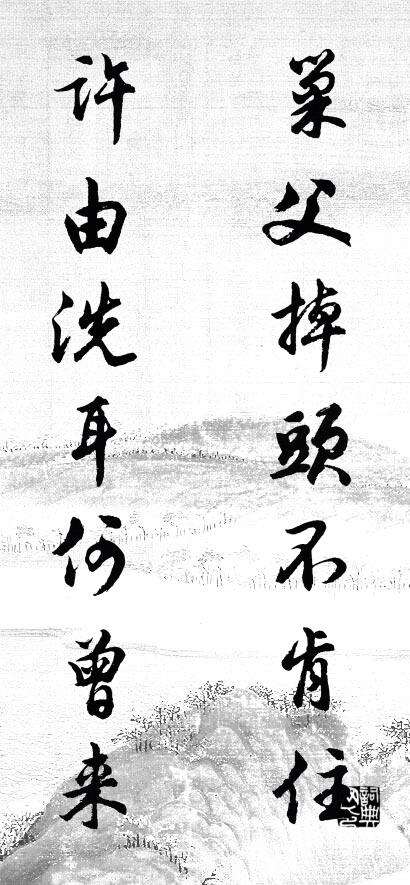 巢父掉頭不肯住
许由洗耳何曾来